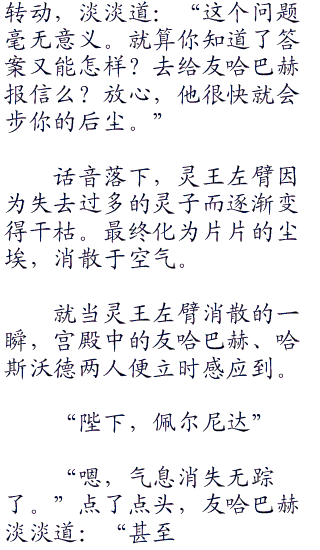 转动，淡淡道：“这个问题
毫无意义。就算你知道了答
案又能怎样？去给友哈巴赫
报信么？放心，他很快就会
步你的后尘。”
话音落下，灵王左臂因
为失去过多的灵子而逐渐变
得干枯。最终化为片片的尘
埃，消散于空气。
就当灵王左臂消散的一
瞬，宫殿中的友哈巴赫、哈
斯沃德两人便立时感应到。
“陛下，佩尔尼达”
“嗯，气息消失无踪
了。”点了点头，友哈巴赫
淡淡道：“甚至